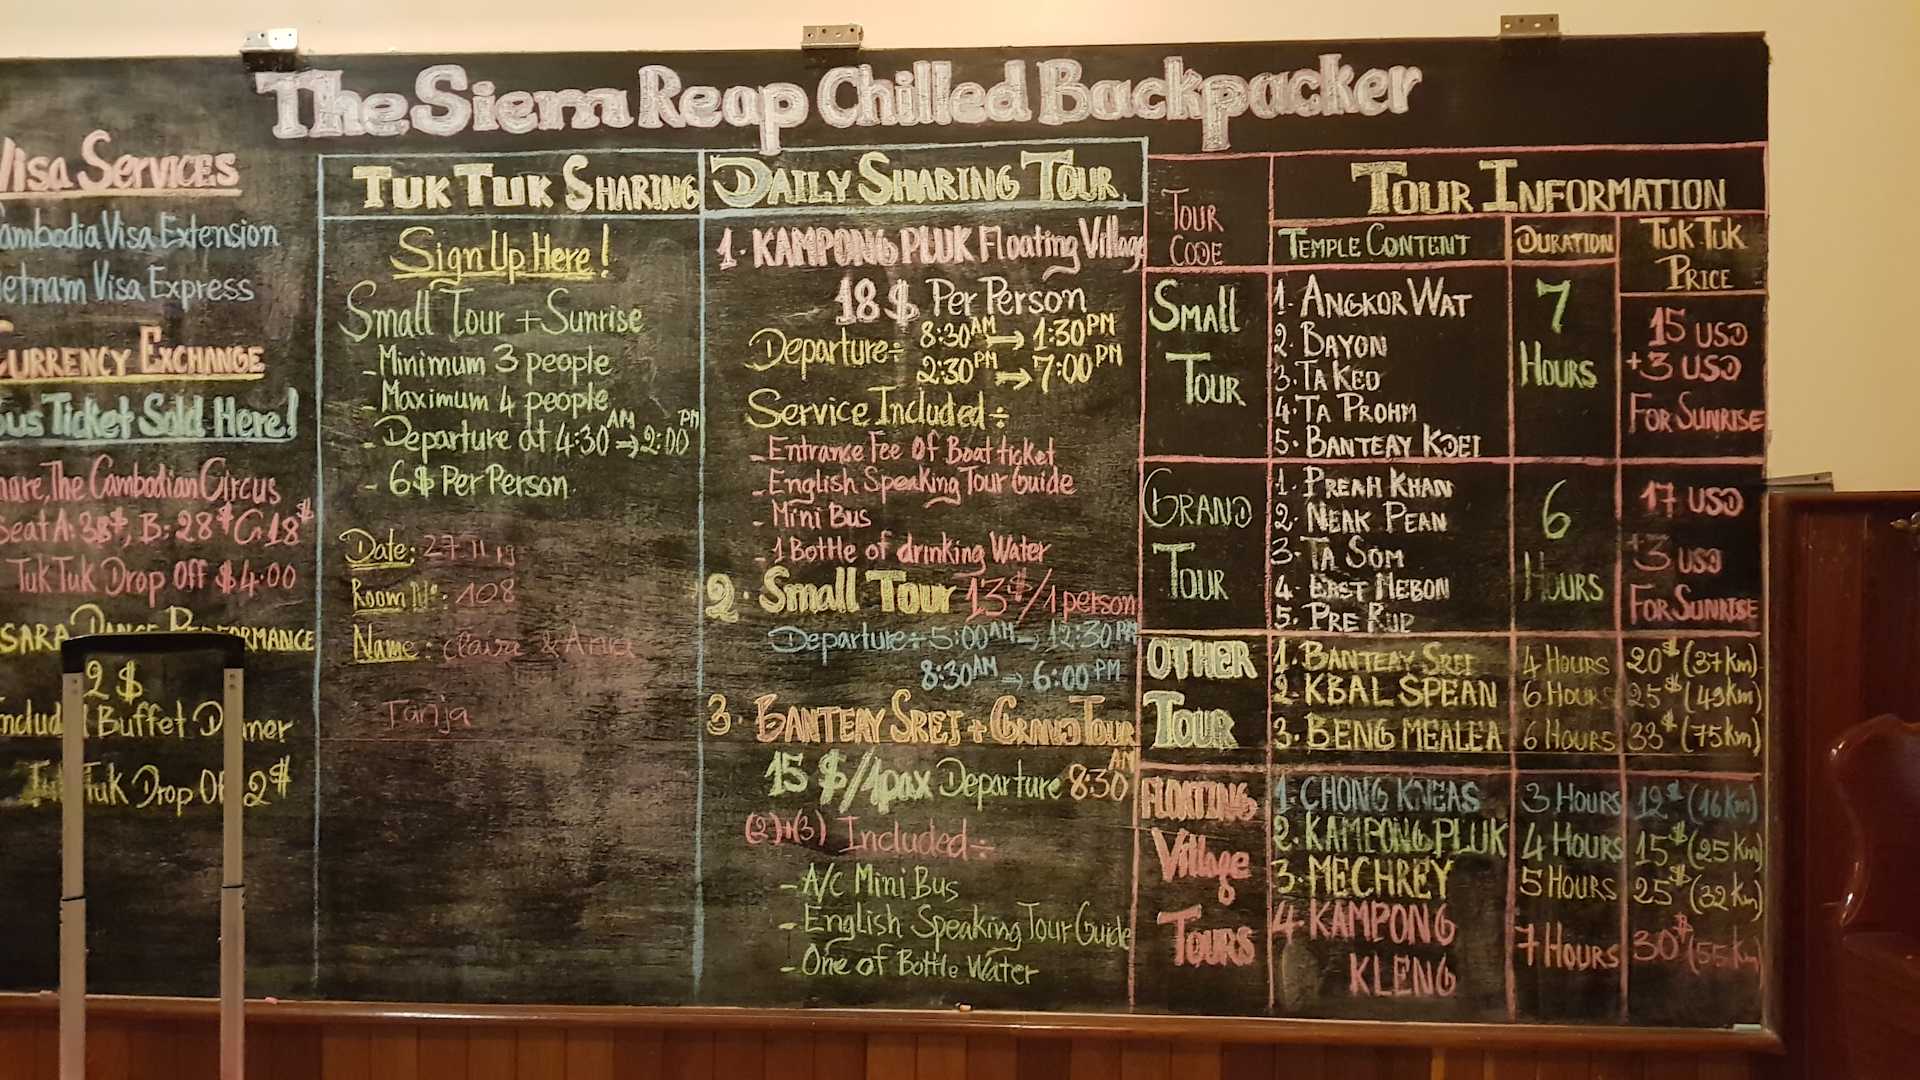 The Siem Reap Chilled Backpacker
Visa Services
Cambodia Visa Extension
Vietnam Visa Express
Currency Exchange
Bus Ticket Sold Here!
The Cambodian Circus
Seat A: 38$, B: 28$ C: 18$
Tuk Tuk Drop Off $4.00
Dance Performance
2 $
Buffet
Tuk Drop 2$
Tuk Tuk Sharing
Sign Up Here!
Small Tour + Sunrise
- Minimum 3 people
- Maximum 4 people
- Departure at 4:30 AM → 2:00 PM
- 6$ Per Person
Date: 27 11 19
Room Nº: 108
Name: &
Tanja
Daily Sharing Tour
1. KAMPONG PLUK Floating Village
18 $ Per Person
Departure÷ 8:30 AM → 1:30 PM
2:30 PM → 7:00 PM
Service Included ÷
- Entrance Fee Of Boat ticket
- English Speaking Tour Guide
- Mini Bus
- 1 Bottle of drinking Water
2. Small Tour 13$/1 person
Departure ÷ 5:00 AM → 12:30 PM
8:30 AM → 6:00 PM
3. Banteay Srei + Grand Tour
15 $/1pax Departure 8:30 AM
(2)+(3) Included ÷
- A/C Mini Bus
- English Speaking Tour Guide
- One of Bottle Water
Tour Information
Tour Code
Temple Content
Duration
Tuk Tuk Price
Small Tour
1. Angkor Wat
2. Bayon
3. Ta Keo
4. Ta Prohm
5. Banteay Kdei
7 Hours
15 USD
+3 USD
For Sunrise
Grand Tour
1. Preah Khan
2. Neak Pean
3. Ta Som
4. East Mebon
5. Pre Rup
6 Hours
17 USD
+3 USD
For Sunrise
Other Tour
1. Banteay Srei 4 Hours 20$ (37km)
2. Kbal Spean 6 Hours 25$ (49km)
3. Beng Mealea 6 Hours 33$ (75km)
Floating Village Tours
1. Chong Kneas 3 Hours 12$ (16km)
2. Kampong Pluk 4 Hours 15$ (25km)
3. Mechrey 5 Hours 25$ (32km)
4. Kampong Kleng 7 Hours 30$ (55km)